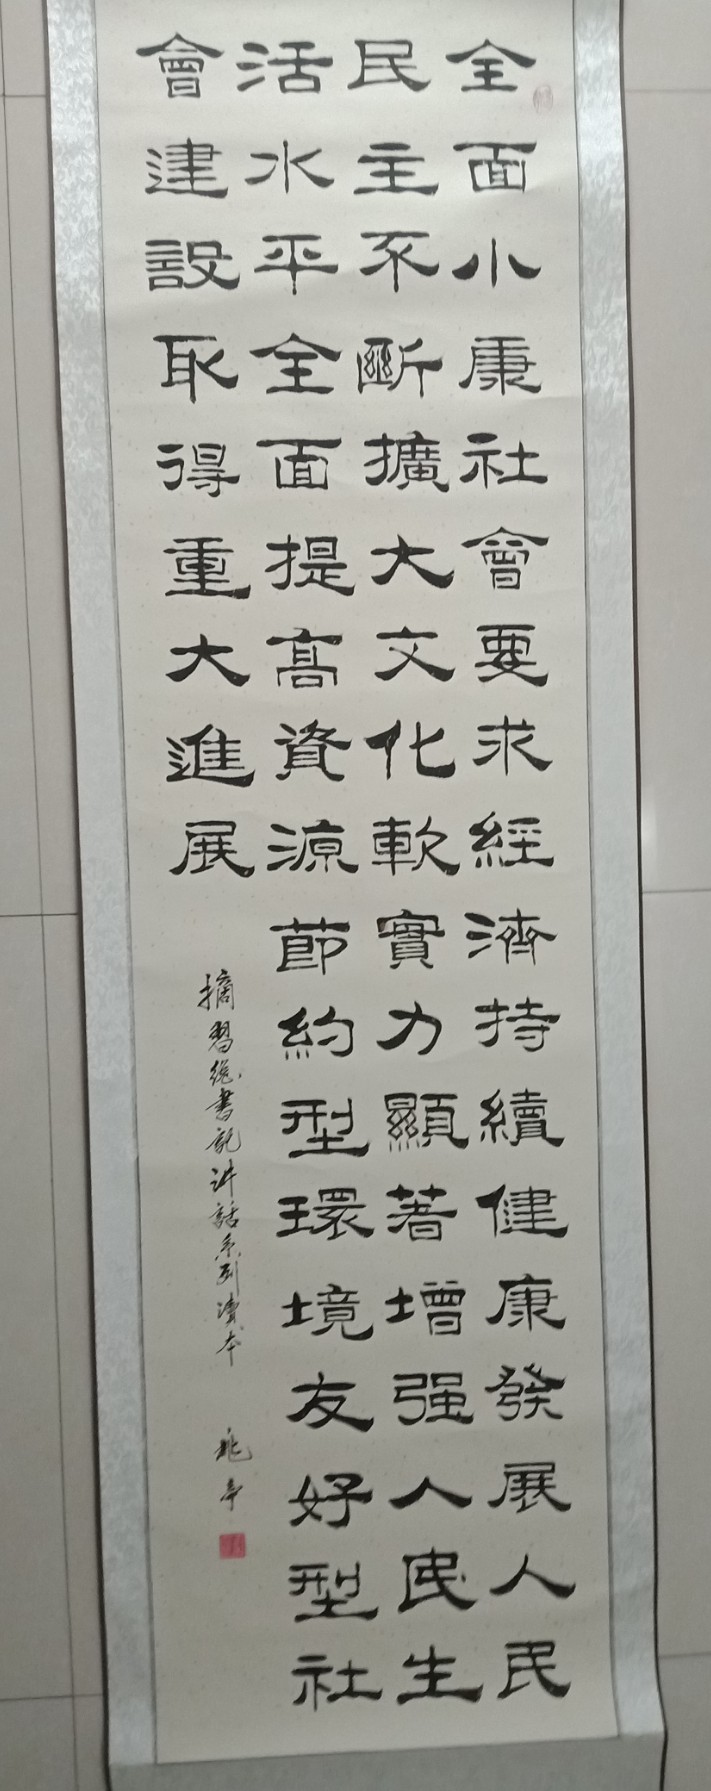 全面小康社會要求經濟持續健康發展人民
民主不斷擴大文化軟實力顯著增强人民生
活水平全面提高資源節約型環境友好型社
會建設取得重大進展
摘習總書記讲話系列讀本